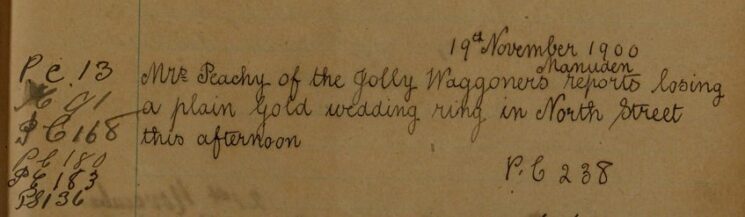 19th November 1900
P.C. 13
Mrs Peachy of the Jolly Waggoners Manuden reports losing
91
a plain Gold wedding ring in North Street
P C 168
this afternoon
P C 180
P. C 238
P C 183
PS 136